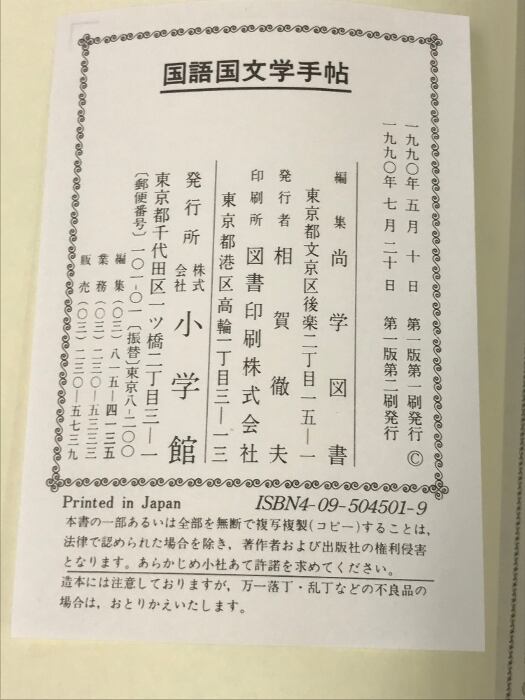 国語国文学手帖
一九九〇年五月十日 第一版第一刷発行 ©
一九九〇年七月二十日 第一版第二刷発行
編集 尚学図書
東京都文京区後楽二丁目一五—一
発行者 相賀徹夫
印刷所 図書印刷株式会社
東京都港区高輪一丁目三—一三
発行所 株式会社 小学館
東京都千代田区一ツ橋二丁目三—一
〔郵便番号〕一〇一-〇一〔振替〕東京八-二〇〇
編集(〇三)八一五—四一三五
業務(〇三)二三〇—五三三三
販売(〇三)二三〇—五七三九
Printed in Japan ISBN4-09-504501-9
本書の一部あるいは全部を無断で複写複製(コピー)することは,
法律で認められた場合を除き,著作者および出版社の権利侵害
となります。あらかじめ小社あて許諾を求めてください。
造本には注意しておりますが,万一落丁・乱丁などの不良品の
場合は,おとりかえいたします。